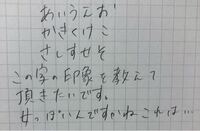 あいうえお
かきくけこ
さしすせそ
この字の印象を教えて
頂きたいです。
女っぽいんですかねこれは…